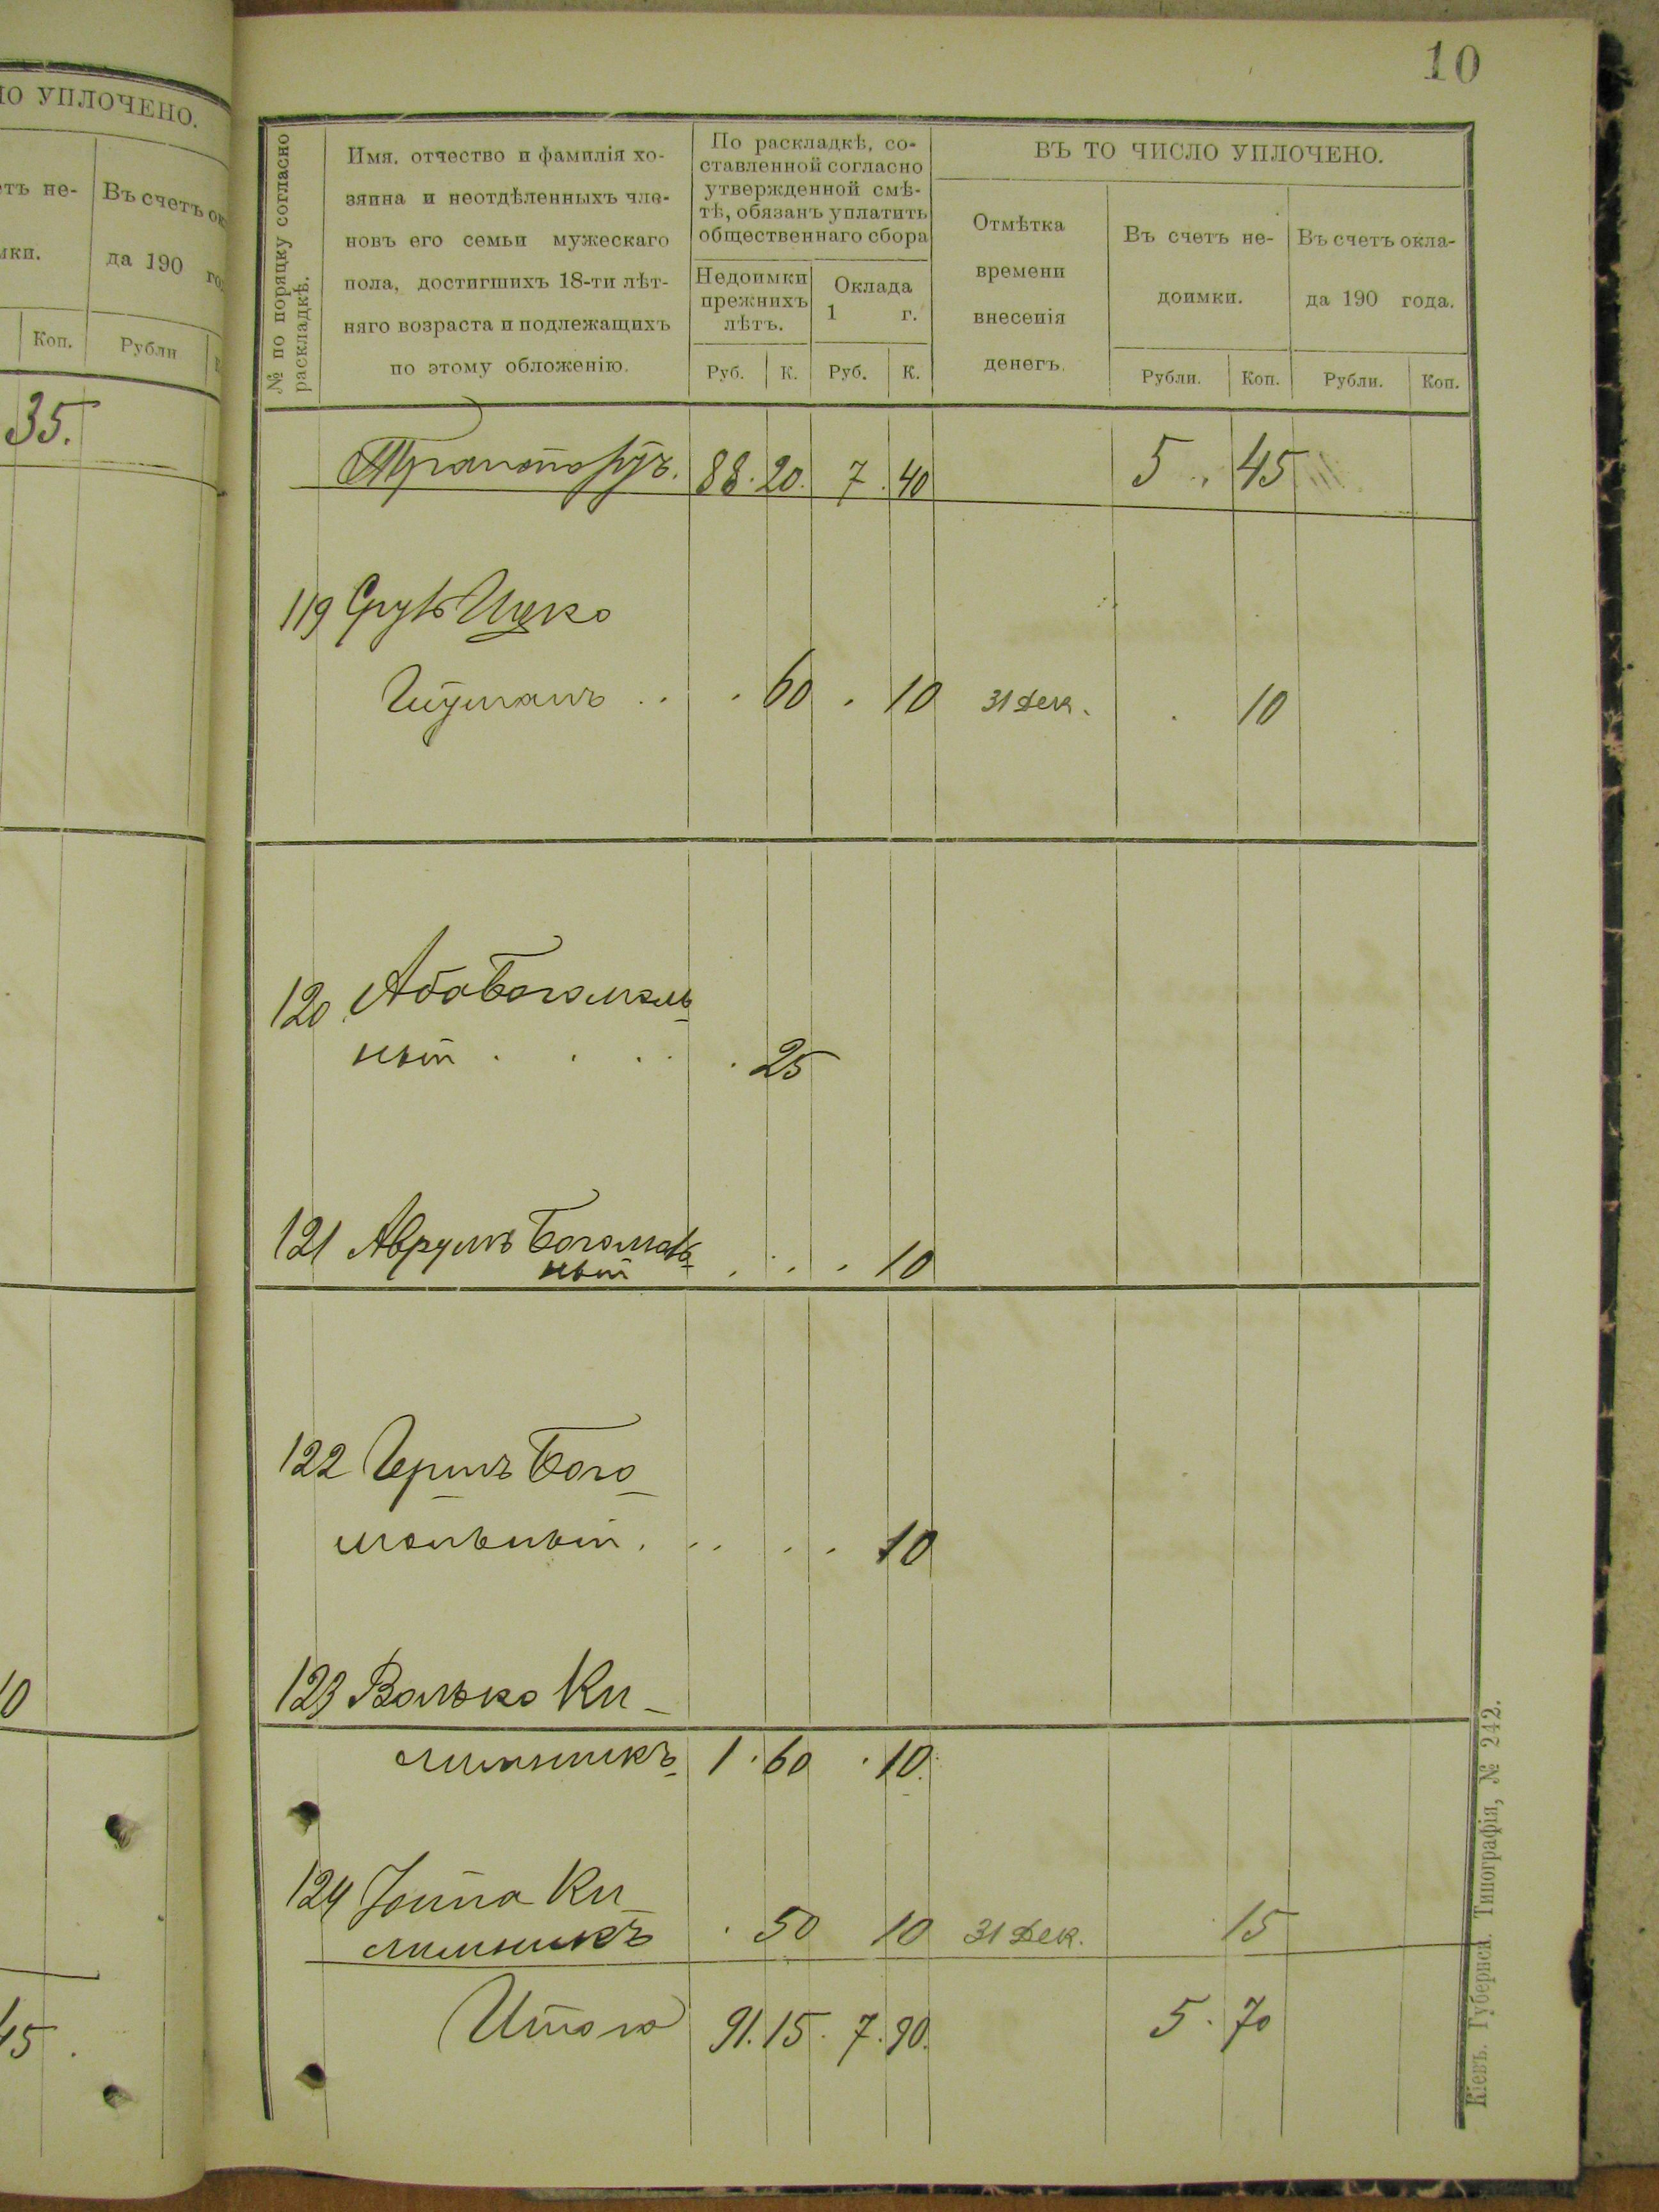 10
НО УПЛОЧЕНО.
етъ не-
Въ счетъ ок
мки.
да 190 го
Коп.
Рубли
35.
10
45.
№ по порядку согласно
раскладкѣ.
Имя, отчество и фамилія хо-
зяина и неотдѣленныхъ чле-
новъ его семьи мужескаго
пола, достигшихъ 18-ти лѣт-
няго возраста и подлежащихъ
по этому обложенію.
По раскладкѣ, со-
ставленной согласно
утвержденной смѣ-
тѣ, обязанъ уплатить
общественнаго сбора
Недоимки
прежнихъ
лѣтъ.
Оклада
1 г.
Руб. К. Руб. К.
ВЪ ТО ЧИСЛО УПЛОЧЕНО.
Отмѣтка
времени
внесенія
денегъ.
Въ счетъ не-
доимки.
Въ счетъ окла-
да 190 года.
Рубли. Коп. Рубли. Коп.
Транспортъ. 88. 20. 7. 40 5 . 45
119 Сруль Ицко
Гитманъ . . . 60 . 10 31 Дек. . 10
120 Аба Богомоль
ный . . . . . 25
121 Аврумъ Богомоль
ный . . . 10
122 Гершъ Бого
мольный . . . . . 10
123 Волько Ки-
лимникъ 1. 60 . 10.
124 Іойна Ки
лимникъ . 50 10 31 Дек. . 15
Итого 91. 15. 7. 90. 5. 70
Кіевъ. Губернск. Типографія, № 242.